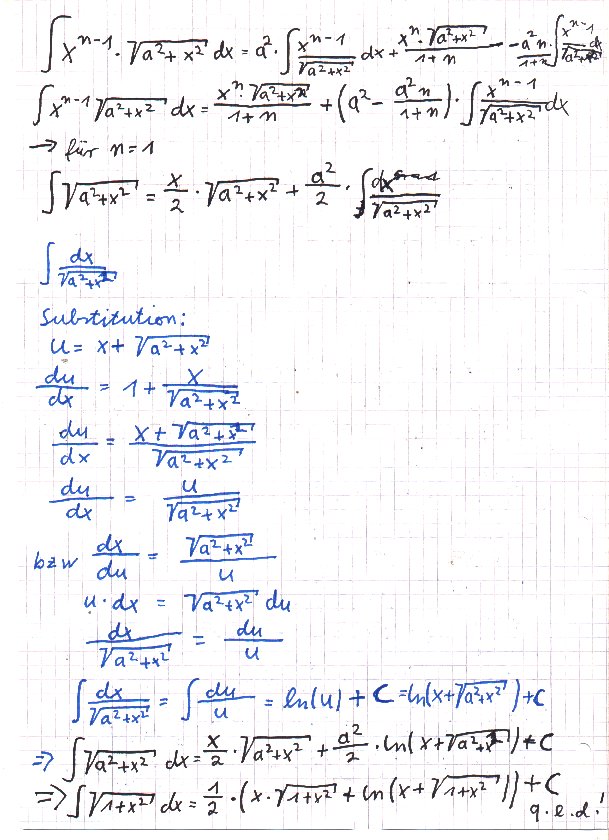 ∫ x^(n-1) · √(a²+x²) dx = a² · ∫ x^(n-1)/√(a²+x²) dx + x^n · √(a²+x²)/(1+n) - a²n/(1+n) · ∫ x^(n-1)/√(a²+x²) dx
∫ x^(n-1) √(a²+x²) dx = x^n · √(a²+x²)/(1+n) + (a² - a²n/(1+n)) · ∫ x^(n-1)/√(a²+x²) dx
→ für n=1
∫ √(a²+x²) = x/2 · √(a²+x²) + a²/2 · ∫ dx/√(a²+x²)
∫ dx/√(a²+x²)
Substitution:
u = x + √(a²+x²)
du/dx = 1 + x/√(a²+x²)
du/dx = (x + √(a²+x²))/√(a²+x²)
du/dx = u/√(a²+x²)
bzw dx/du = √(a²+x²)/u
u · dx = √(a²+x²) du
dx/√(a²+x²) = du/u
∫ dx/√(a²+x²) = ∫ du/u = ln(u) + C = ln(x+√(a²+x²)) + C
⇒ ∫ √(a²+x²) dx = x/2 · √(a²+x²) + a²/2 · ln(x+√(a²+x²)) + C
⇒ ∫ √(1+x²) dx = 1/2 · (x · √(1+x²) + ln(x + √(1+x²))) + C
q.e.d!